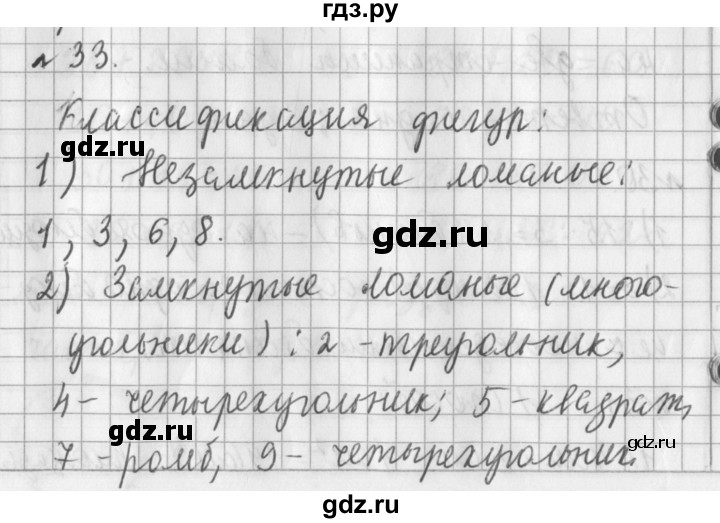 гдз.ру
№ 33.
Классификация фигур:
1) Незамкнутые ломаные:
gdz.ru
1, 3, 6, 8.
2) Замкнутые ломаные (много-
gdz.ru
угольники): 2 - треугольник,
4 - четырехугольник; 5 - квадрат,
gdz.ru
gdz.ru
7 - ромб, 9 - четырехугольник.
gdz.ru